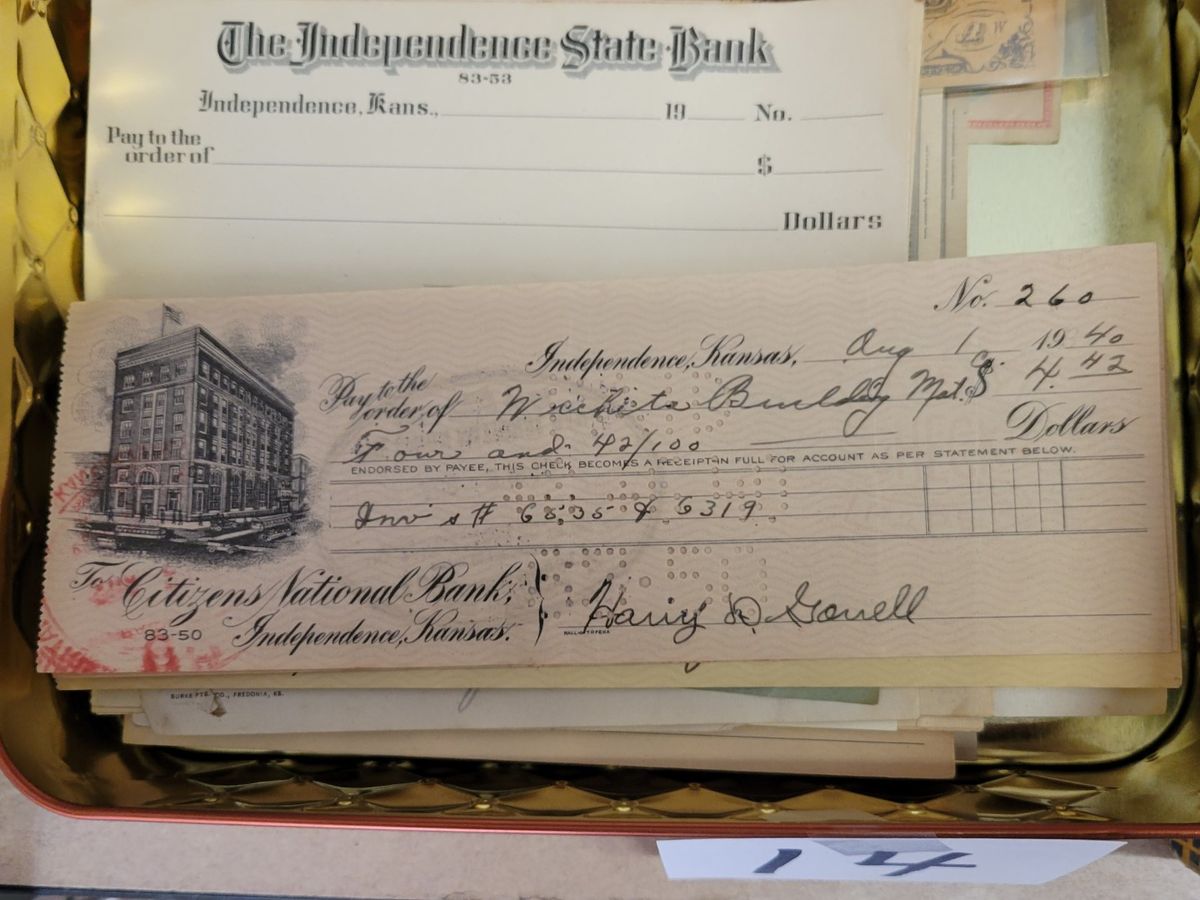 The Independence State Bank
83-53
Independence, Kans., 19 No.
Pay to the
order of $
Dollars
No. 260
Independence, Kansas, Aug 1 1940
Pay to the
order of Wichita Building Mat. Co $ 4.42
Four and 42/100 Dollars
ENDORSED BY PAYEE, THIS CHECK BECOMES A RECEIPT IN FULL FOR ACCOUNT AS PER STATEMENT BELOW.
Inv's # 6535 & 6319
To Citizens National Bank,
83-50 Independence, Kansas.
Harry D.
BURKE PTG. CO., FREDONIA, KS.
14